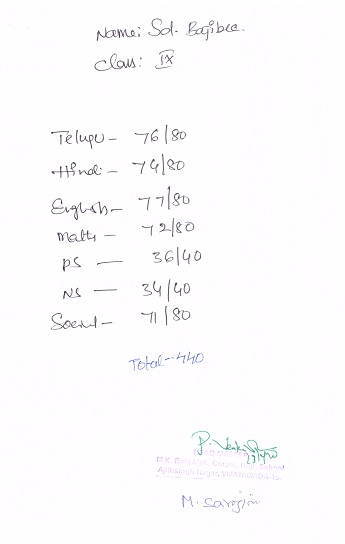 Name: Sd. Bajibee.
Class: IX
Telugu - 76/80
Hindi - 74/80
English - 77/80
Maths - 72/80
PS - 36/40
NS - 34/40
Social - 71/80
Total - 440
Ajitsingh Nagar, VIJAYAWADA-15.
M. Sarojini